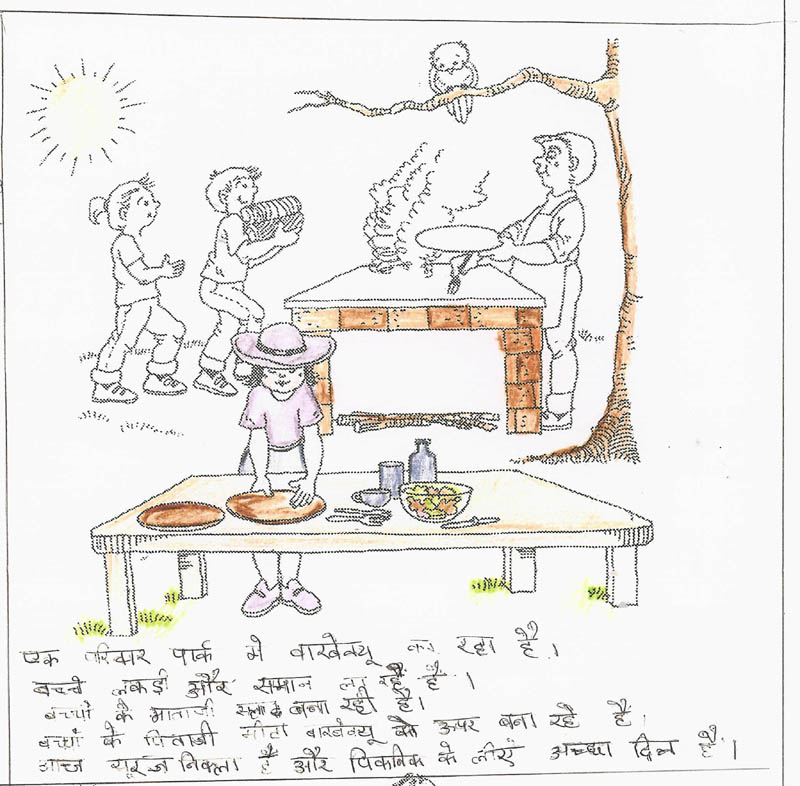 एक परिवार पार्क मे बारबेक्यू का रहा है।
बच्चे लकड़ी और समान ला रहें है।
बच्चों के माताजी सलाद बना रही है।
बच्चों के पिताजी मीटा बारबेक्यू के ऊपर बना रहे है।
आज सूरज निकला है और पिकनिक के लीए अच्छा दिन है।